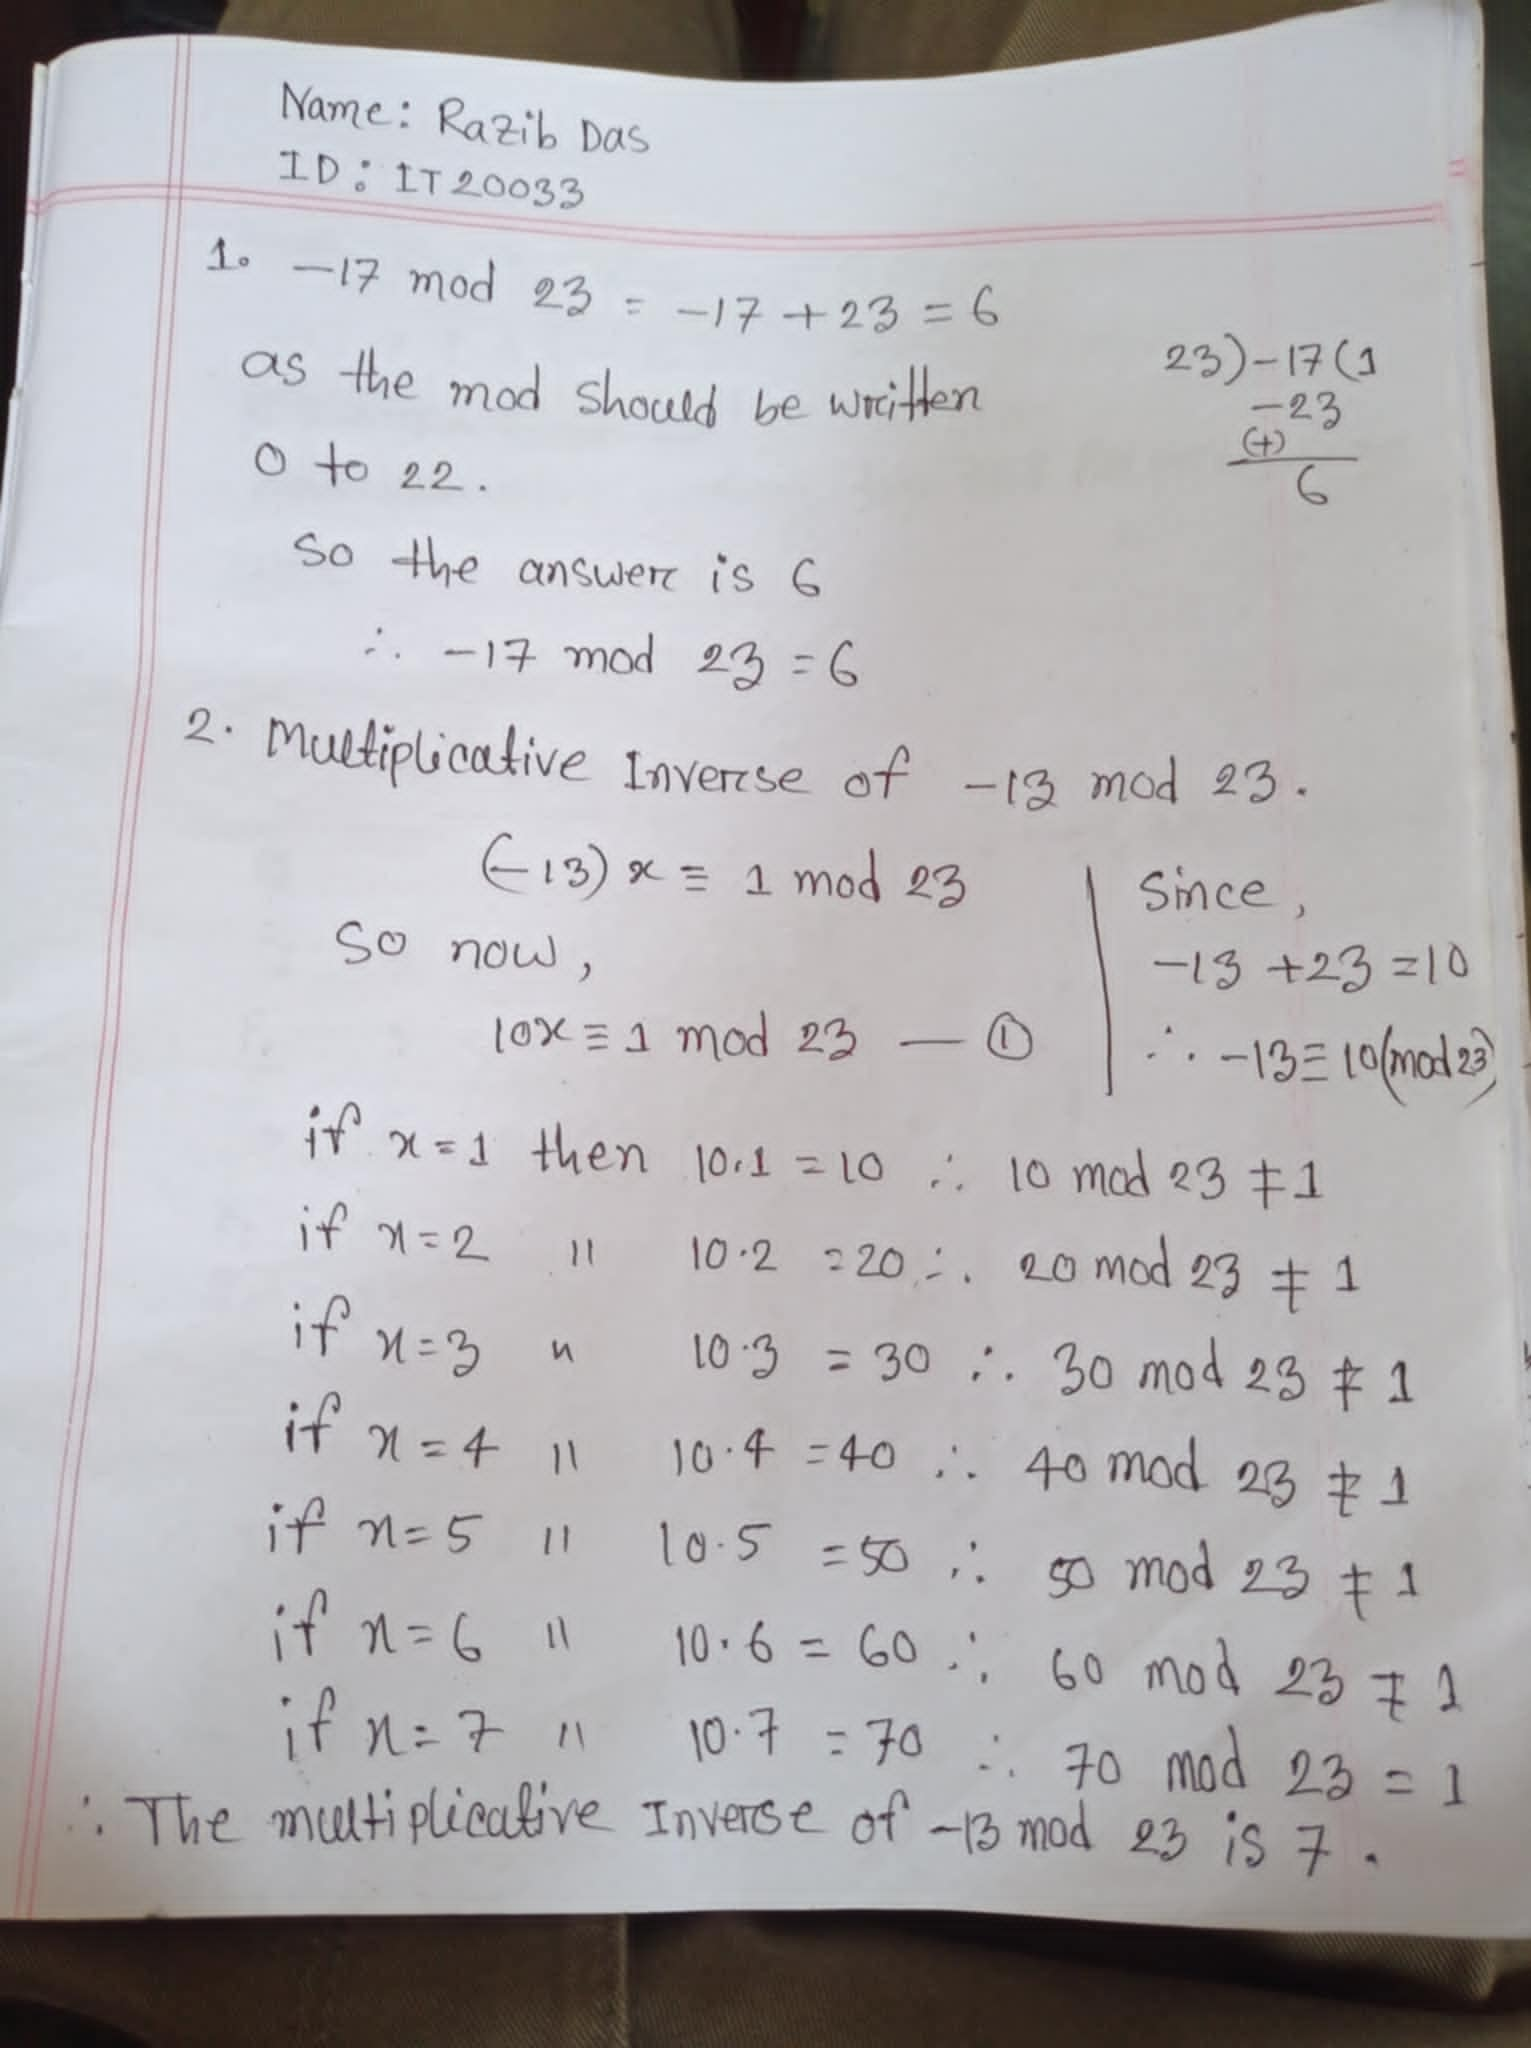 Name: Razib Das
ID: IT20033
1. -17 mod 23 = -17 + 23 = 6
as the mod should be written
0 to 22.
23)-17(1
-23
(+)
6
So the answer is 6
∴ -17 mod 23 = 6
2. Multiplicative Inverse of -13 mod 23.
(-13)x ≡ 1 mod 23
So now,
10x ≡ 1 mod 23 — ①
Since,
-13 +23 =10
∴ -13 ≡ 10(mod 23)
if x=1 then 10.1 =10 ∴ 10 mod 23 ≠1
if x=2 " 10.2 =20 ∴ 20 mod 23 ≠ 1
if x=3 " 10.3 = 30 ∴ 30 mod 23 ≠ 1
if x=4 " 10.4 =40 ∴ 40 mod 23 ≠ 1
if x=5 " 10.5 =50 ∴ 50 mod 23 ≠ 1
if x=6 " 10.6 = 60 ∴ 60 mod 23 ≠ 1
if x=7 " 10.7 =70 ∴ 70 mod 23 = 1
∴ The multiplicative Inverse of -13 mod 23 is 7.